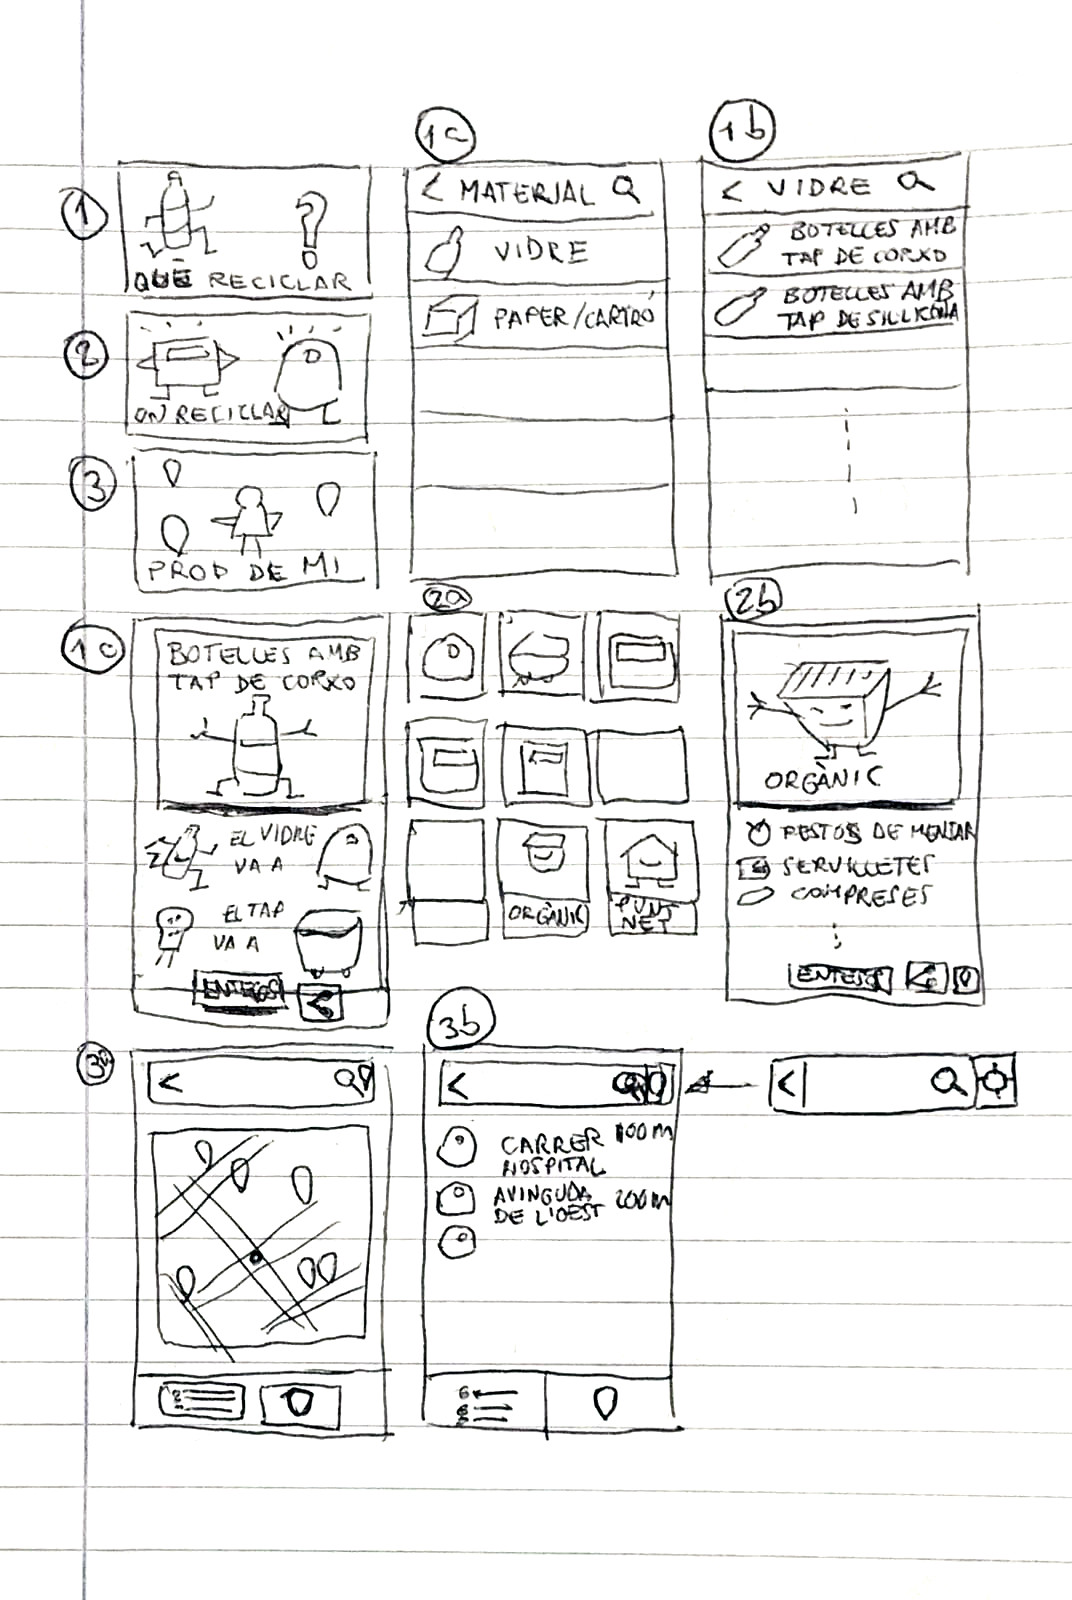 1
QUÈ RECICLAR
2
ON RECICLAR
3
PROD DE MI
1a
< MATERIAL
VIDRE
PAPER/CARTRÓ
1b
< VIDRE
BOTELLES AMB
TAP DE CORXO
BOTELLES AMB
TAP DE SILLICONA
1c
BOTELLES AMB
TAP DE CORXO
EL VIDRE
VA A
EL TAP
VA A
ENTESOS
2a
ORGÀNIC
PUNT
NET
2b
ORGÀNIC
RESTOS DE MENJAR
SERVILLETES
COMPRESES
ENTESOS
3a
<
3b
<
CARRER 100m
HOSPITAL
AVINGUDA 200m
DE L'OEST
<